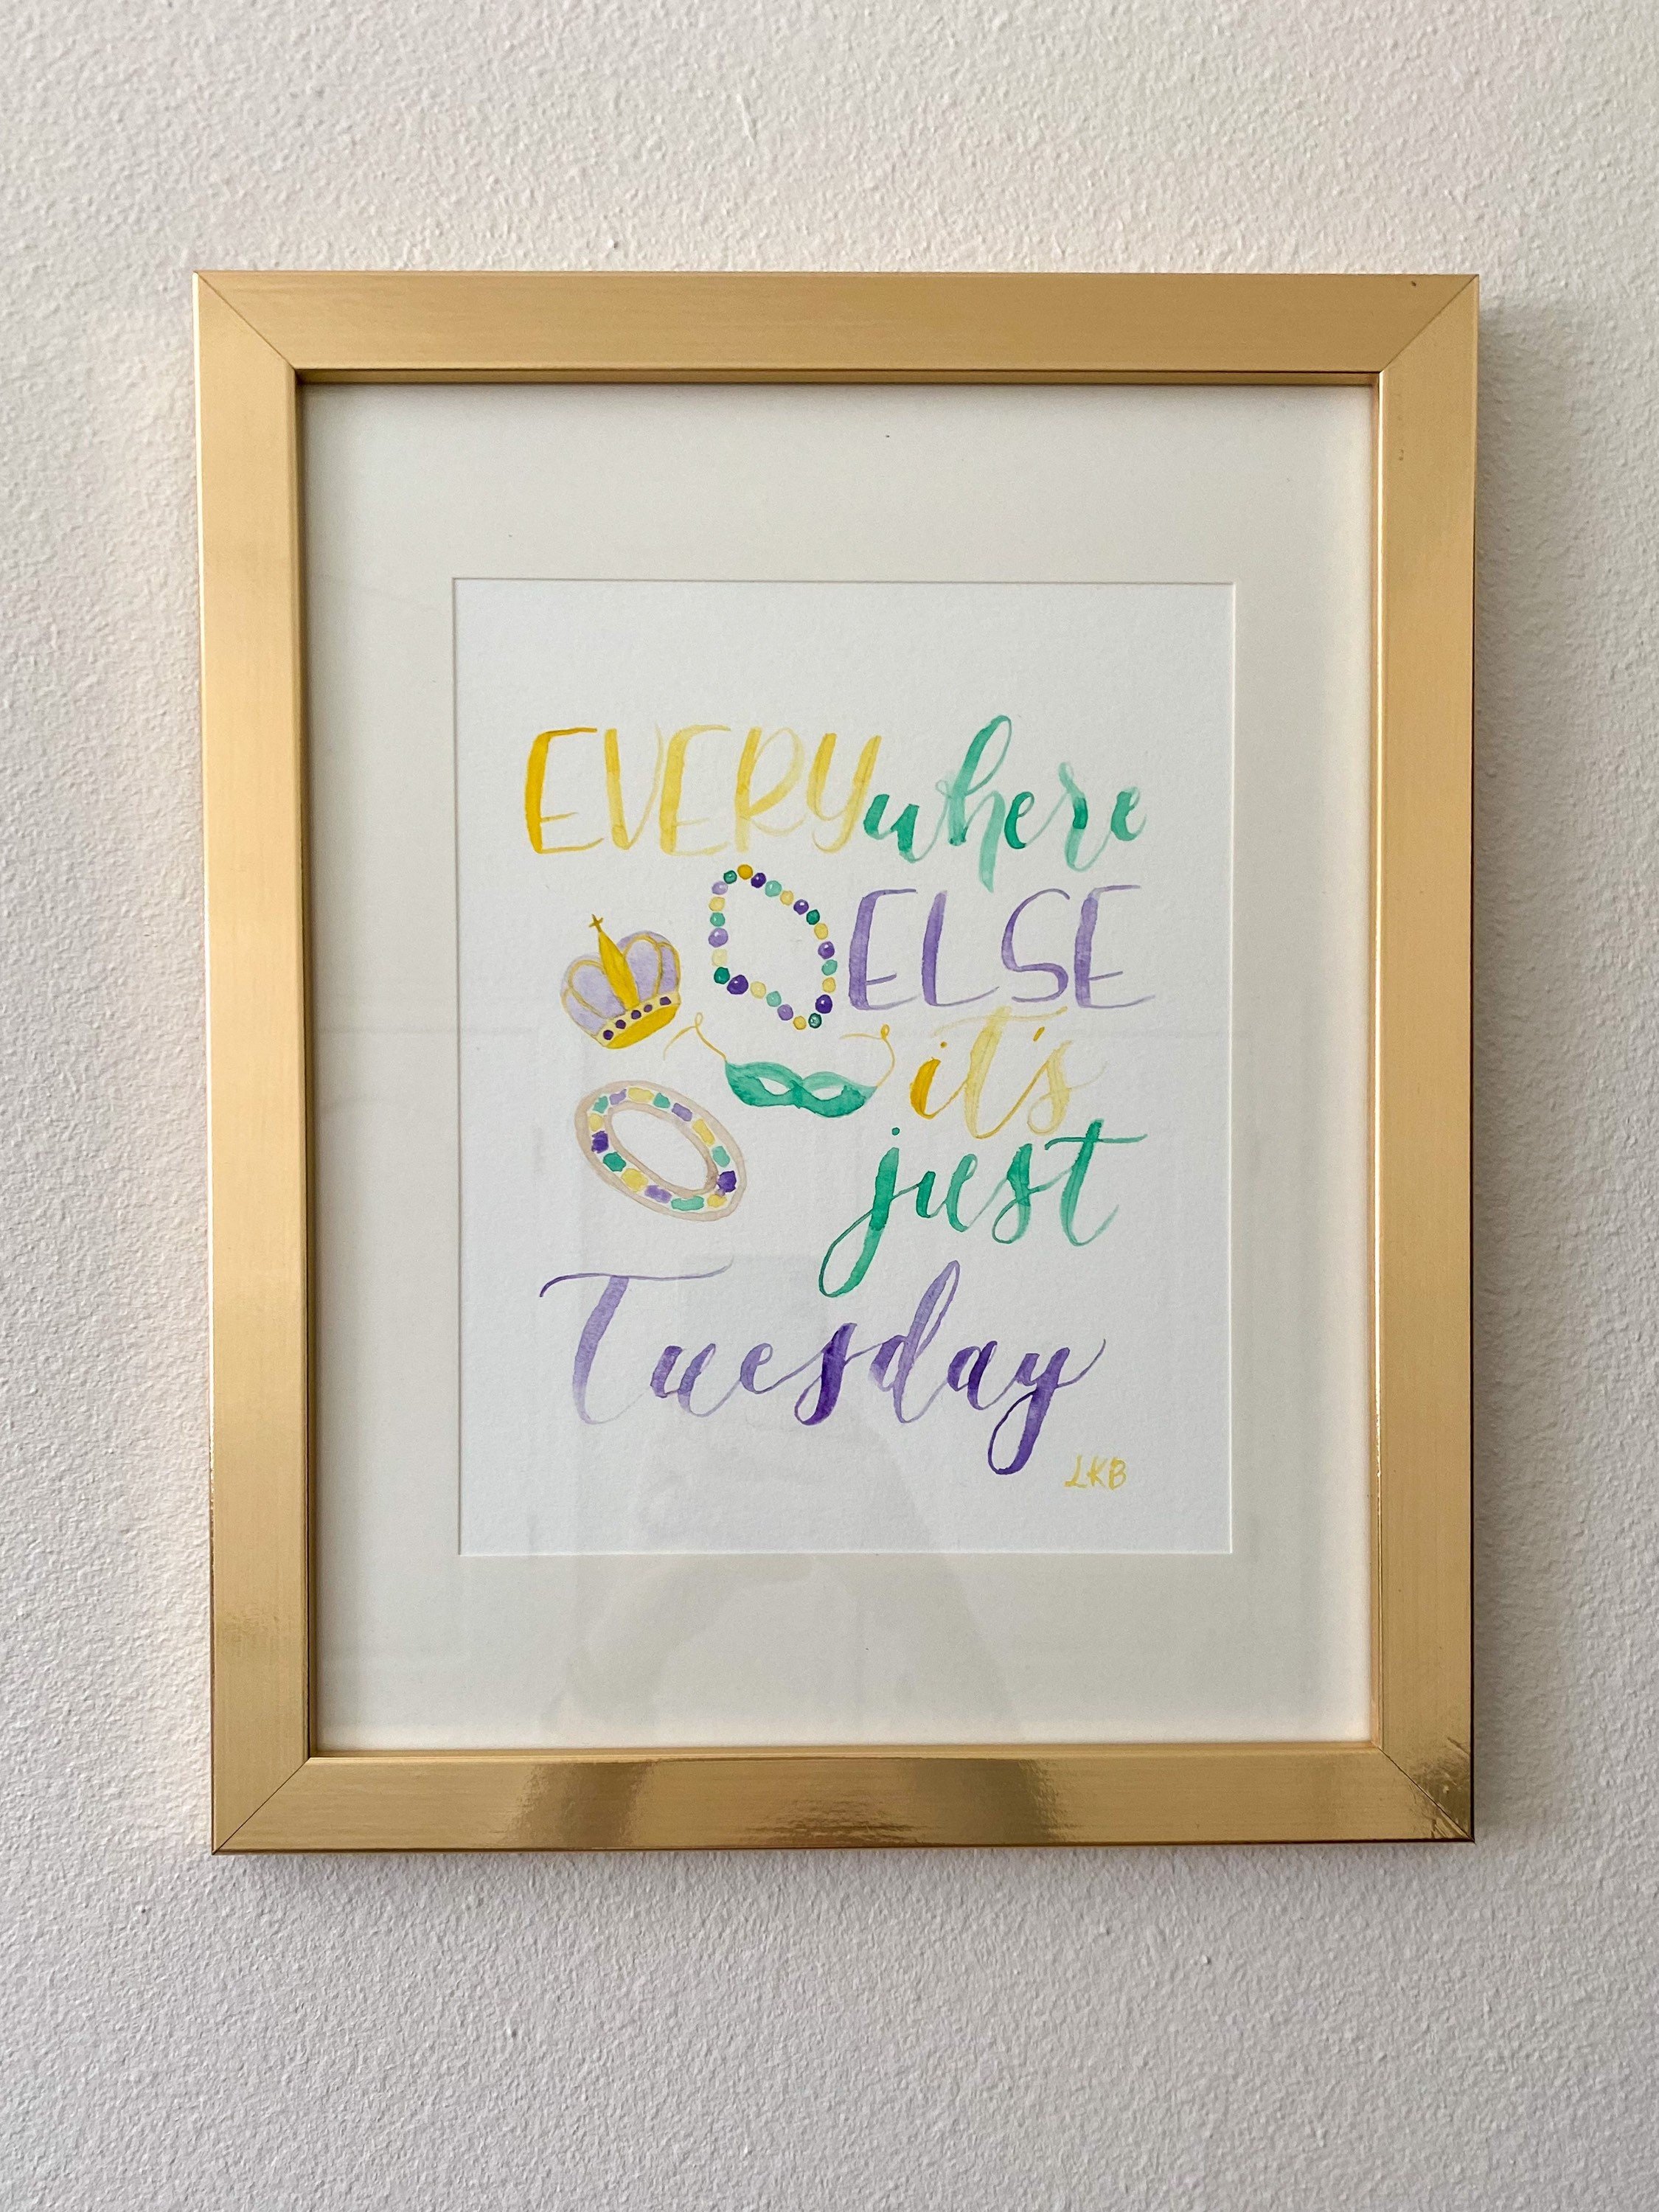 EVERYwhere
ELSE
it's
just
Tuesday
LKB